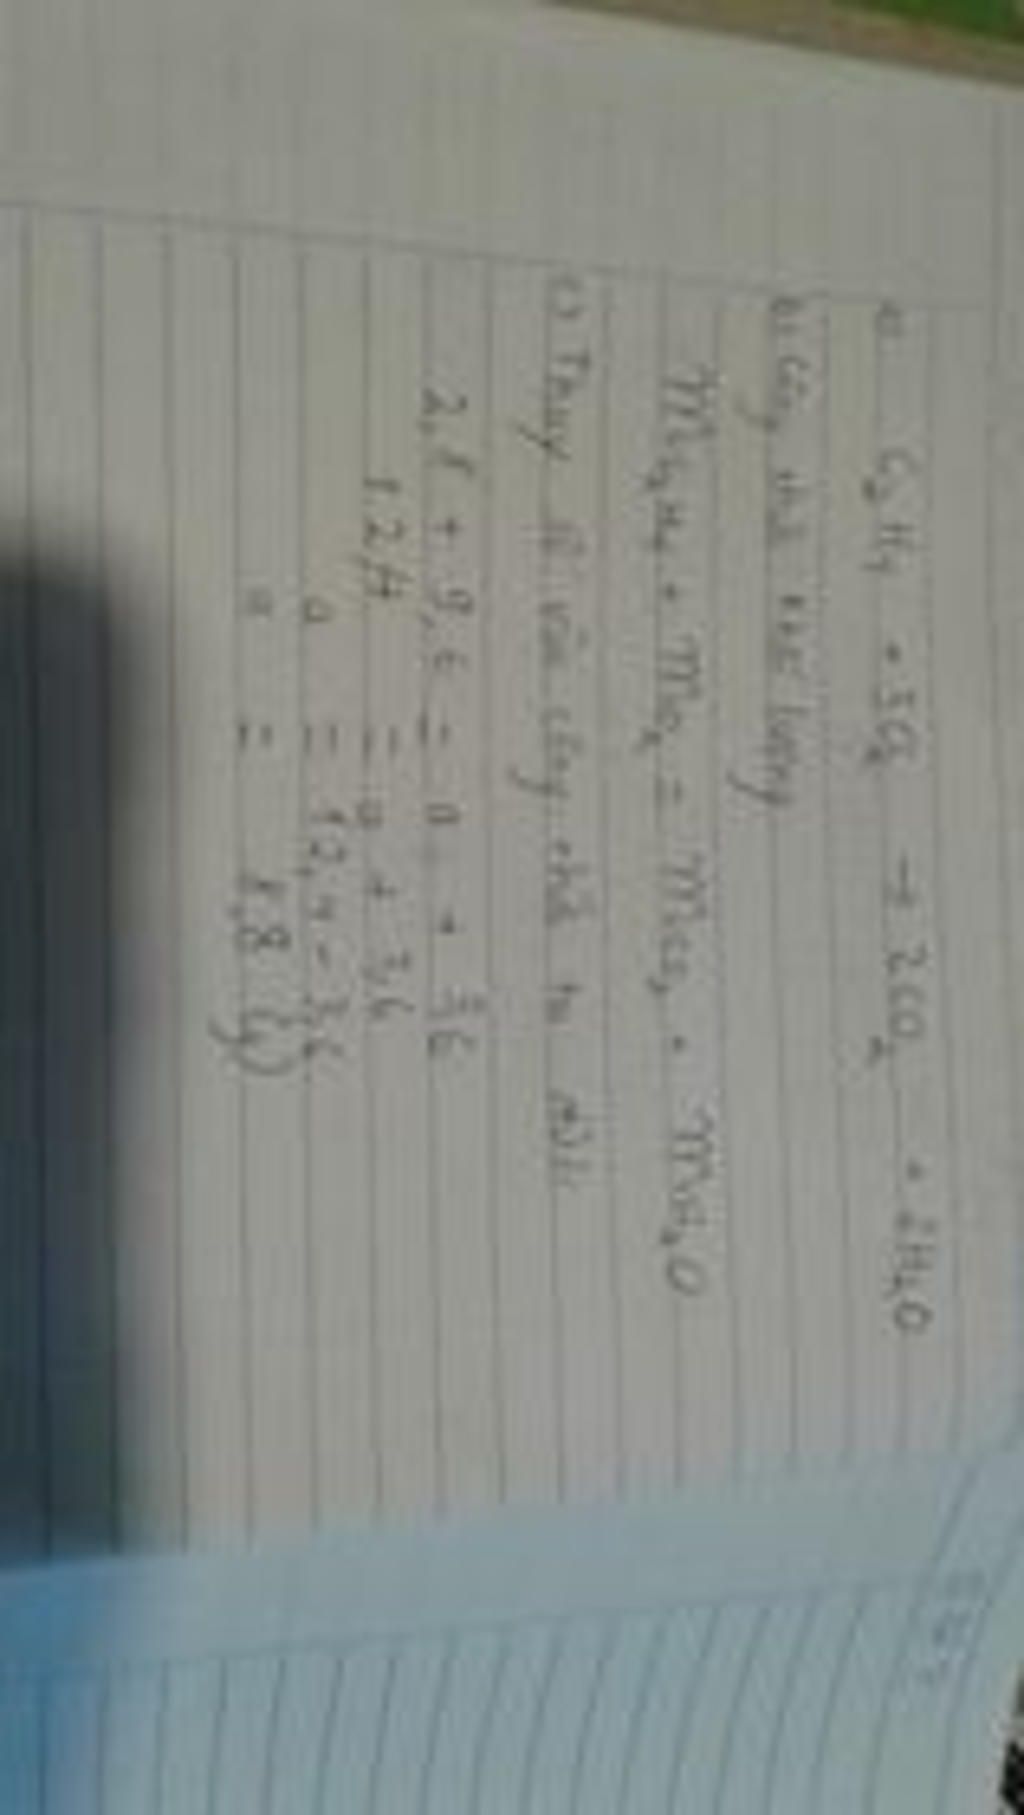 a) C₂H₄ + 3O₂ → 2CO₂ + 2H₂O
b) công thức khối lượng
mC₂H₄ + mO₂ = mCO₂ + mH₂O
c) Thay số vào công thức ta được
2,8 + 9,6 = a + 3,6
12,4 = a + 3,6
a = 12,4 - 3,6
a = 8,8 (g)